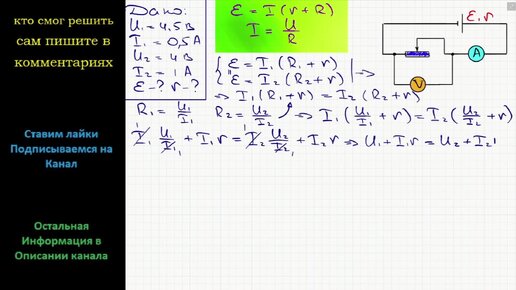 кто смог решить
сам пишите в
комментариях
Ставим лайки
Подписываемся на
Канал
Остальная
Информация в
Описании канала
Дано:
U₁ = 4,5 В
I₁ = 0,5 А
U₂ = 4 В
I₂ = 1 А
Ɛ - ? r - ?
Ɛ = I (r + R)
I = U/R
{ Ɛ = I₁ (R₁ + r)
Ɛ = I₂ (R₂ + r) | ⇒
⇒ I₁ (R₁ + r) = I₂ (R₂ + r)
R₁ = U₁/I₁ R₂ = U₂/I₂ ⇒ I₁ (U₁/I₁ + r) = I₂ (U₂/I₂ + r)
I₁ U₁/I₁ + I₁ r = I₂ U₂/I₂ + I₂ r ⇒ U₁ + I₁ r = U₂ + I₂
Ɛ, r
A
V